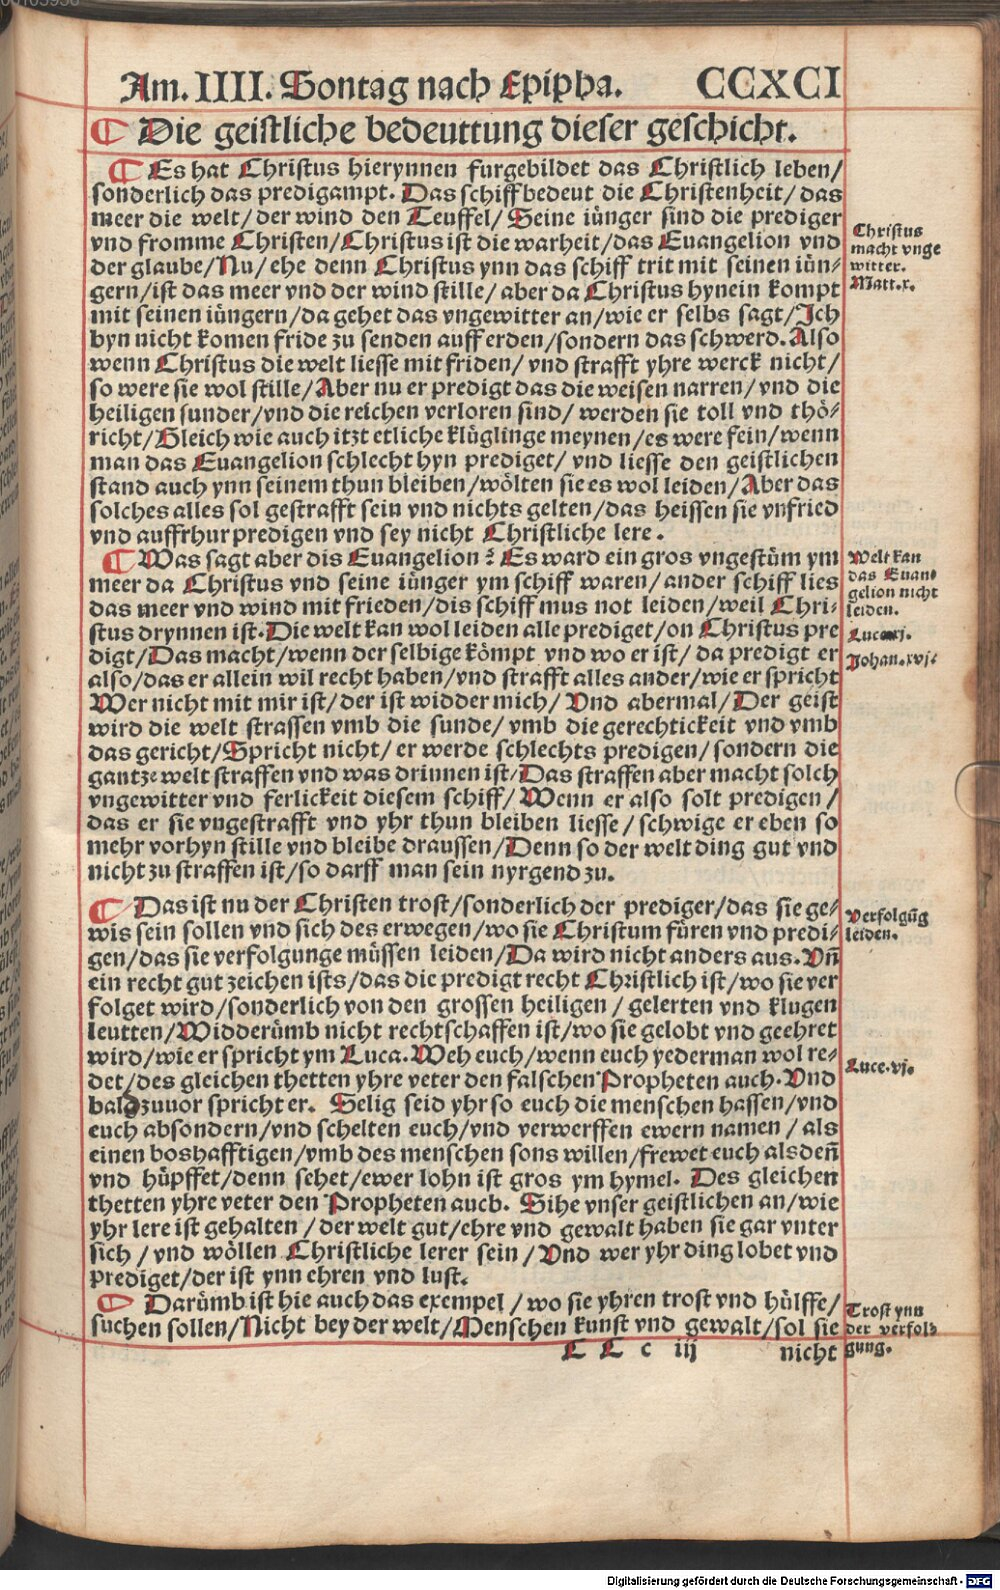 Am. IIII. Sontag nach Epipha. CCXCI
Die geistliche bedeuttung dieser geschicht.
Es hat Christus hierynnen furgebildet das Christlich leben/
sonderlich das predigampt. Das schiff bedeut die Christenheit/ das
meer die welt/ der wind den Teuffel/ Seine iünger sind die prediger
vnd fromme Christen/ Christus ist die warheit/ das Euangelion vnd
der glaube/ Nu/ ehe denn Christus ynn das schiff trit mit seinen iün-
gern/ ist das meer vnd der wind stille/ aber da Christus hynein kompt
mit seinen iüngern/ da gehet das vngewitter an/ wie er selbs sagt/ Ich
byn nicht komen fride zu senden auff erden/ sondern das schwerd. Also
wenn Christus die welt liesse mit friden/ vnd strafft yhre werck nicht/
so were sie wol stille/ Aber nu er predigt das die weisen narren/ vnd die
heiligen sunder/ vnd die reichen verloren sind/ werden sie toll vnd thö-
richt/ Gleich wie auch itzt etliche klüglinge meynen/ es were fein/ wenn
man das Euangelion schlecht hyn prediget/ vnd liesse den geistlichen
stand auch ynn seinem thun bleiben/ wölten sie es wol leiden/ Aber das
solches alles sol gestrafft sein vnd nichts gelten/ das heissen sie vnfried
vnd auffrhur predigen vnd sey nicht Christliche lere.
Was sagt aber dis Euangelion? Es ward ein gros vngestüm ym
meer da Christus vnd seine iünger ym schiff waren/ ander schiff lies
das meer vnd wind mit frieden/ dis schiff mus not leiden/ weil Chri-
stus drynnen ist. Die welt kan wol leiden alle prediget/ on Christus pre
digt/ Das macht/ wenn der selbige kömpt vnd wo er ist/ da predigt er
also/ das er allein wil recht haben/ vnd strafft alles ander/ wie er spricht
Wer nicht mit mir ist/ der ist widder mich/ Vnd abermal/ Der geist
wird die welt strassen vmb die sunde/ vmb die gerechtickeit vnd vmb
das gericht/ Spricht nicht/ er werde schlechts predigen/ sondern die
gantze welt straffen vnd was drinnen ist/ Das straffen aber macht solch
vngewitter vnd ferlickeit diesem schiff/ Wenn er also solt predigen/
das er sie vngestrafft vnd yhr thun bleiben liesse/ schwige er eben so
mehr vorhyn stille vnd bleibe draussen/ Denn so der welt ding gut vnd
nicht zu straffen ist/ so darff man sein nyrgend zu.
Das ist nu der Christen trost/ sonderlich der prediger/ das sie ge-
wis sein sollen vnd sich des erwegen/ wo sie Christum füren vnd predi-
gen/ das sie verfolgunge müssen leiden/ Da wird nicht anders aus. Vñ
ein recht gut zeichen ists/ das die predigt recht Christlich ist/ wo sie ver
folget wird/ sonderlich von den grossen heiligen/ gelerten vnd klugen
leutten/ Widderümb nicht rechtschaffen ist/ wo sie gelobt vnd geehret
wird/ wie er spricht ym Luca. Weh euch/ wenn euch yederman wol re-
det/ des gleichen thetten yhre veter den falschen Propheten auch. Vnd
bald zuuor spricht er. Selig seid yhr so euch die menschen hassen/ vnd
euch absondern/ vnd schelten euch/ vnd verwerffen ewern namen/ als
einen boshafftigen/ vmb des menschen sons willen/ frewet euch alsdeñ
vnd hüpffet/ denn sehet/ ewer lohn ist gros ym hymel. Des gleichen
thetten yhre veter den Propheten auch. Sihe vnser geistlichen an/ wie
yhr lere ist gehalten/ der welt gut/ ehre vnd gewalt haben sie gar vnter
sich/ vnd wöllen Christliche lerer sein/ Vnd wer yhr ding lobet vnd
prediget/ der ist ynn ehren vnd lust.
Darümb ist hie auch das exempel/ wo sie yhren trost vnd hülffe/
suchen sollen/ Nicht bey der welt/ Menschen kunst vnd gewalt/ sol sie
CC c iij nicht
Christus
macht vnge
witter.
Matt.x.
Welt kan
das Euan-
gelion nicht
leiden.
Luce.xj.
Johan.xvj.
Verfolgũg
leiden.
Luce.vj.
Trost ynn
der verfol-
gung.
Digitalisierung gefördert durch die Deutsche Forschungsgemeinschaft - DFG